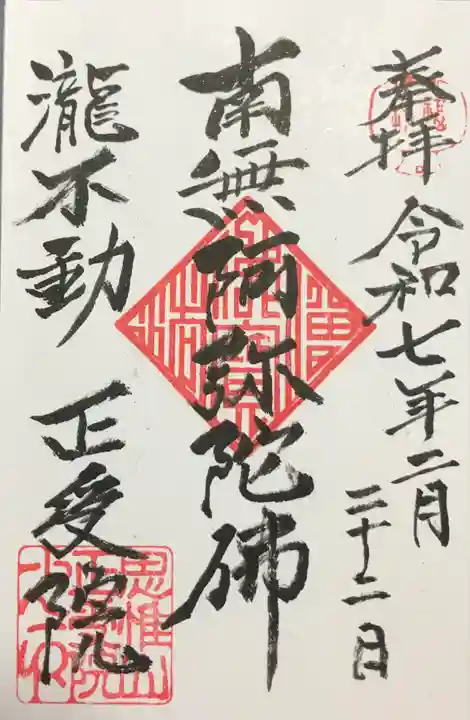 奉拝 令和七年二月
二十二日
南無阿弥陀佛
瀧不動 正受院